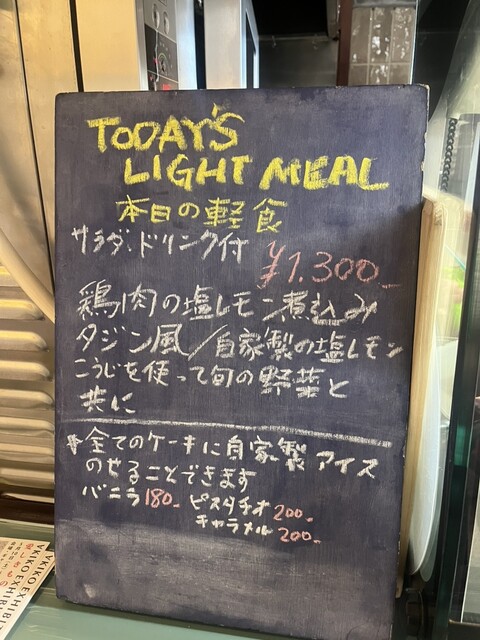 TODAY'S
LIGHT MEAL
本日の軽食
サラダ、ドリンク付
¥1.300-
鶏肉の塩レモン煮込み
タジン風/自家製の塩レモン
こうじを使って旬の野菜と
共に
*全てのケーキに自家製アイス
のせることできます
バニラ180- ピスタチオ200-
キャラメル200-